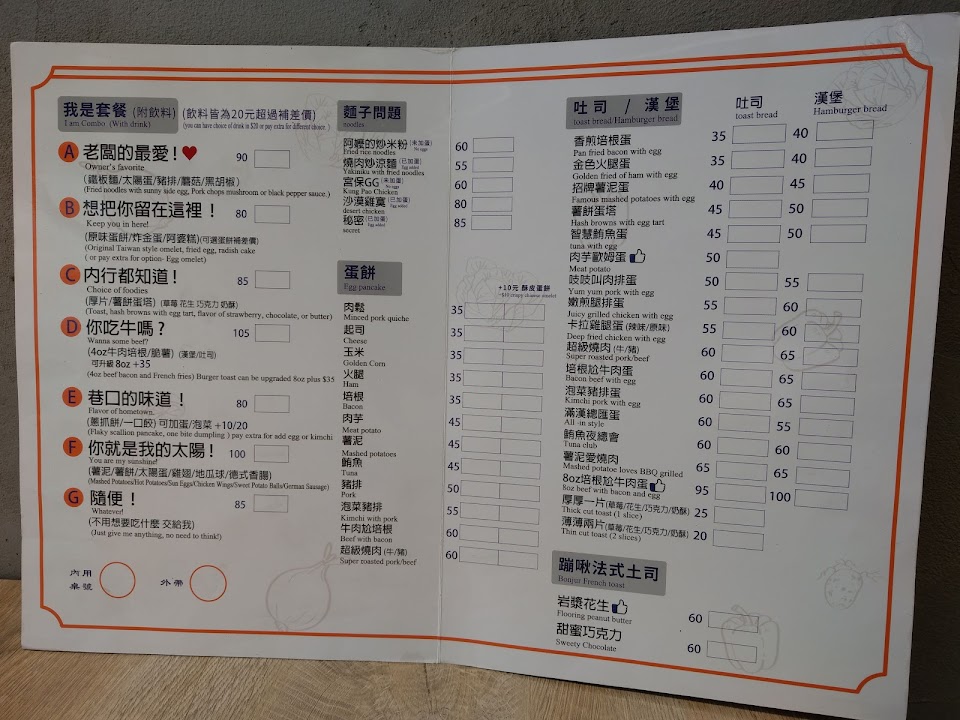 我是套餐 (附飲料) (飲料皆為20元超過補差價)
I am Combo (With drink) (you can have choice of drink in $20 or pay extra for different choice.)
A 老闆的最愛！ 90
Owner's favorite
(鐵板麵/太陽蛋/豬排/蘑菇/黑胡椒)
(Fried noodles with sunny side egg, Pork chops mushroom or black pepper sauce.)
B 想把你留在這裡！ 80
Keep you in here!
(原味蛋餅/炸金蛋/阿婆糕)(可選蛋餅補差價)
(Original Taiwan style omelet, fried egg, radish cake
( or pay extra for option- Egg omelet)
C 內行都知道！ 85
Choice of foodies
(厚片/薯餅蛋塔) (草莓 花生 巧克力 奶酥)
(Toast, hash browns with egg tart, flavor of strawberry, chocolate, or butter)
D 你吃牛嗎？ 105
Wanna some beef?
(4oz牛肉培根/脆薯) (漢堡/吐司)
可升級 8oz +35
(4oz beef bacon and French fries) Burger toast can be upgraded 8oz plus $35
E 巷口的味道！ 80
Flavor of hometown.
(蔥抓餅/一口餃) 可加蛋/泡菜 +10/20
(Flaky scallion pancake, one bite dumpling ) pay extra for add egg or kimchi
F 你就是我的太陽！ 100
You are my sunshine!
(薯泥/薯餅/太陽蛋/雞翅/地瓜球/德式香腸)
(Mashed Potatoes/Hot Potatoes/Sun Eggs/Chicken Wings/Sweet Potato Balls/German Sausage)
G 隨便！ 85
Whatever!
(不用想要吃什麼 交給我)
(Just give me anything, no need to think!)
內用
桌號
外帶
麵子問題
noodles
阿嬤的炒米粉 (未加蛋) No eggs 60
Fried rice noodles
燒肉炒涼麵 (已加蛋) Egg added 55
Yakiniku with fried noodles
宮保GG (未加蛋) No eggs 60
Kung Pao Chicken
沙漠雞寞 (已加蛋) Egg added 80
desert chicken
秘密 (已加蛋) Egg added 85
secret
蛋餅
Egg pancake
+10元 酥皮蛋餅
肉鬆 35
Minced pork quiche
起司 35
Cheese
玉米 35
Golden Corn
火腿 35
Ham
培根 35
Bacon
肉芋 45
Meat potato
薯泥 45
Mashed potatoes
鮪魚 45
Tuna
豬排 50
Pork
泡菜豬排 55
Kimchi with pork
牛肉尬培根 60
Beef with bacon
超級燒肉 (牛/豬) 60
Super roasted pork/beef
吐司 / 漢堡
toast bread Hamburger bread
吐司
toast bread
漢堡
Hamburger bread
香煎培根蛋 35 40
Pan fried bacon with egg
金色火腿蛋 35 40
Golden fried of ham with egg
招牌薯泥蛋 40 45
Famous mashed potatoes with egg
薯餅蛋塔 45 50
Hash browns with egg tart
智慧鮪魚蛋 45 50
tuna with egg
肉芋歐姆蛋 50
Meat potato
吱吱叫肉排蛋 50 55
Yum yum pork with egg
嫩煎腿排蛋 55 60
Juicy grilled chicken with egg
卡拉雞腿蛋 (辣味/原味) 55 60
Deep fried chicken with egg
超級燒肉 (牛/豬) 60 65
Super roasted pork/beef
培根尬牛肉蛋 60 65
Bacon beef with egg
泡菜豬排蛋 60 65
Kimchi pork with egg
滿漢總匯蛋 60 65
All -in style
鮪魚夜總會 60 60
Tuna club
薯泥愛燒肉 65 65
Mashed potatoe loves BBQ grilled
8oz培根尬牛肉蛋 95 100
8oz beef with bacon and egg
厚厚一片(草莓/花生/巧克力/奶酥) 25
Thick cut toast (1 slice)
薄薄兩片(草莓/花生/巧克力/奶酥) 20
Thin cut toast (2 slices)
蹦啾法式土司
Bonjur French toast
岩漿花生 60
Flooring peanut butter
甜蜜巧克力 60
Sweety Chocolate